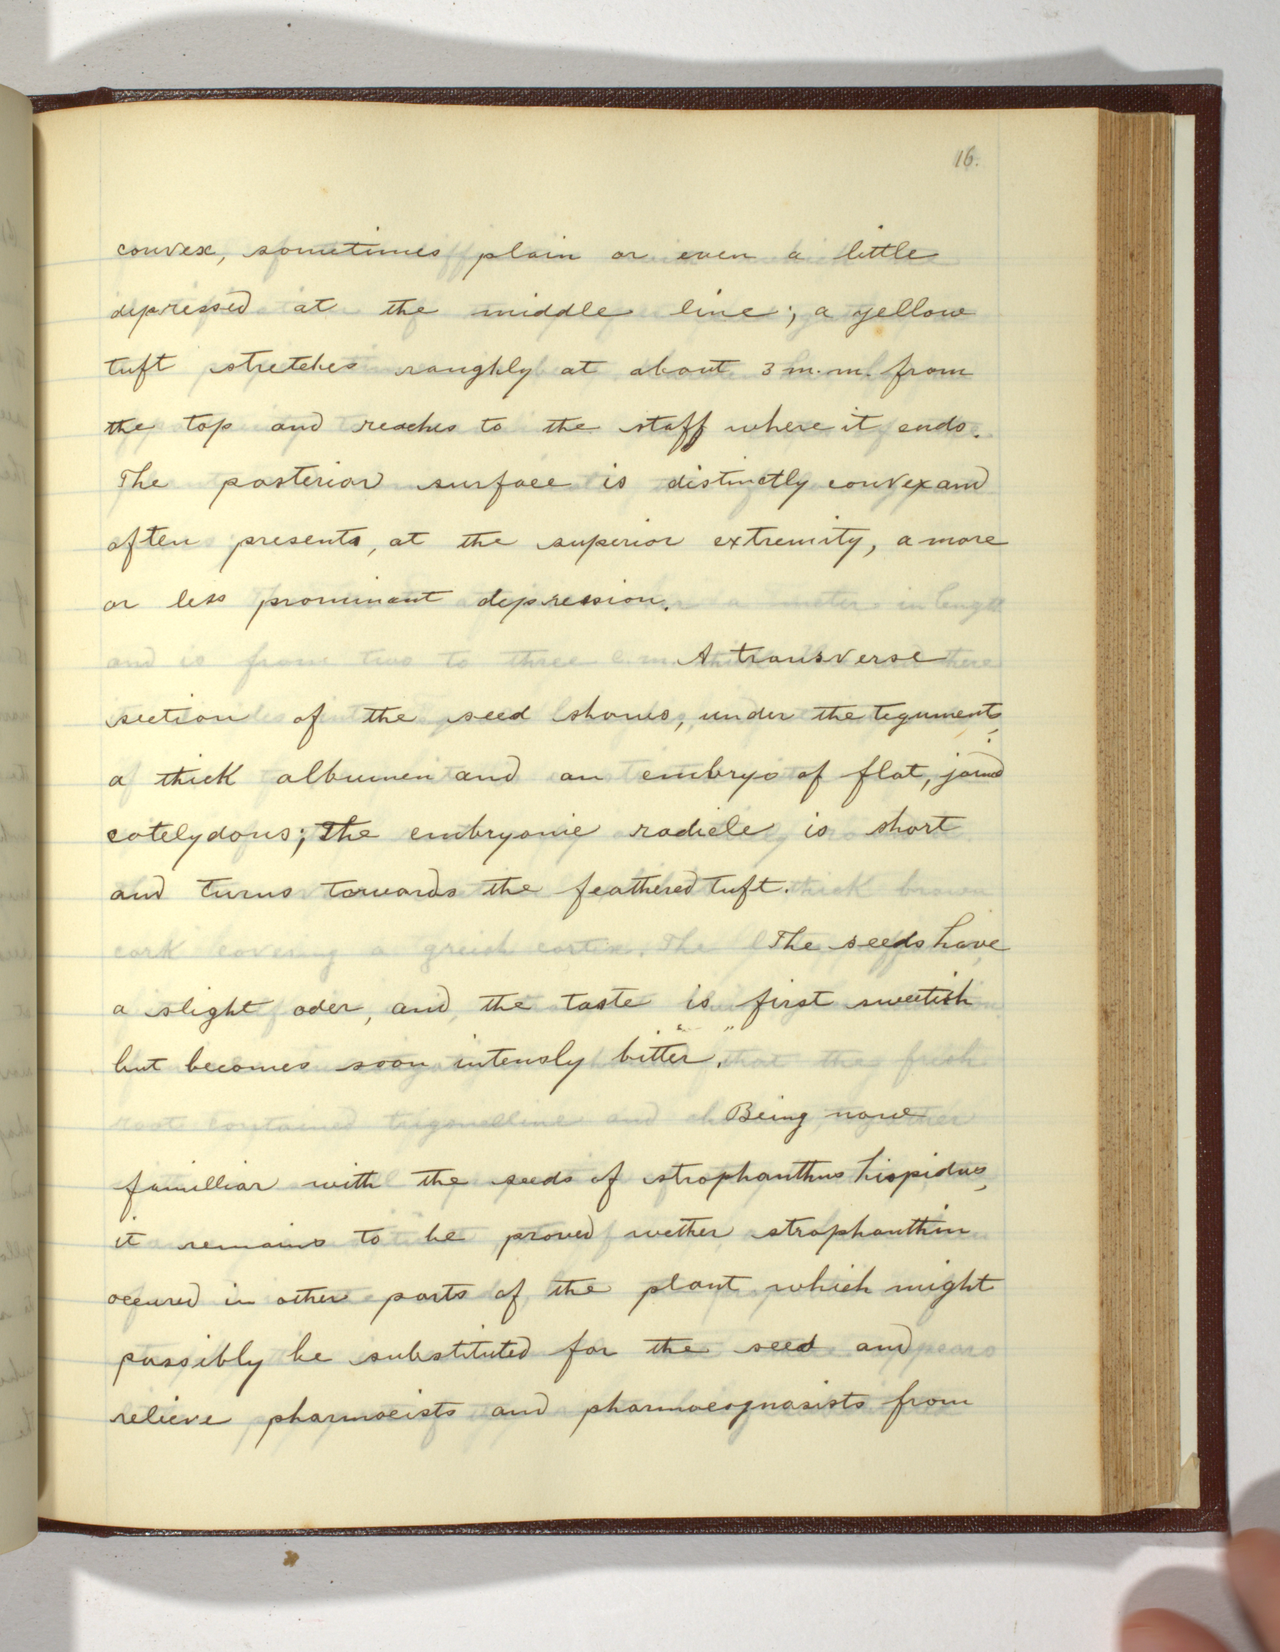 16.
convex, sometimes plain or even a little
depressed at the middle line; a yellow
tuft stretches roughly at about 3 m.m. from
the top and reaches to the staff where it ends.
The posterior surface is distinctly convex and
often presents, at the superior extremity, a more
or less prominent depression.
A transverse
section of the seed shows, under the teguments,
a thick albumen and an embryo of flat, joined
cotelydons; The embryonic radicle is short
and turns towards the feathered tuft.
The seeds have
a slight oder, and the taste is first sweetish
but becomes soon intensly bitter."
Being now
familliar with the seeds of strophanthus hispidus,
it remains to be proved wether strophanthin
occured in other parts of the plant which might
possibly be substituted for the seed and
relieve pharmacists and pharmacognasists from